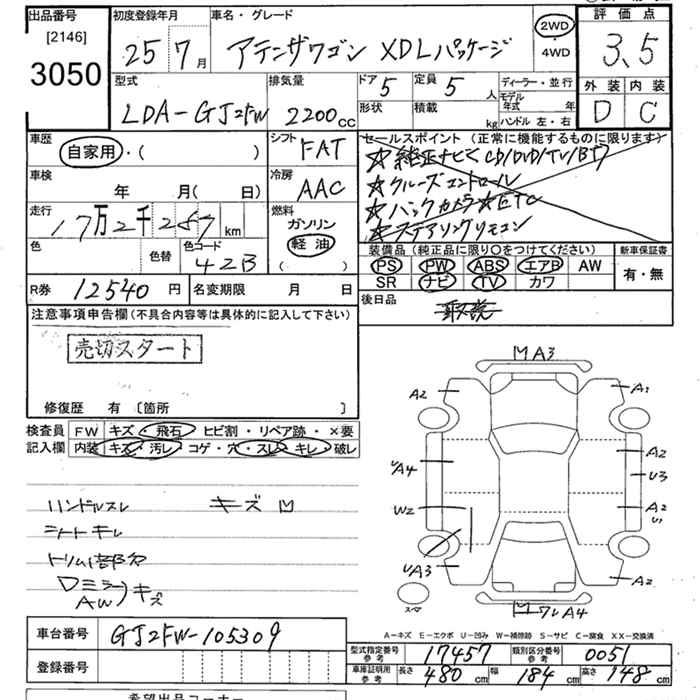 出品番号
[2146]
3050
初度登録年月
25 7月
車名・グレード
アテンザワゴン XDLパッケージ
2WD
・
4WD
評価点
3.5
外装 内装
D C
型式
LDA-GJ2FW
排気量
2200cc
ドア 5
形状
定員 5 人
積載 kg
ディーラー・並行
モデル年式 年
ハンドル 左・右
車歴
自家用・( )
シフト
FAT
車検
年 月( 日)
冷房
AAC
走行
17万2千287km
燃料
ガソリン
軽油
( )
色
色替
色コード
42B
セールスポイント(正常に機能するものに限ります)
☆純正ナビ CD/DVD/TV/BT
☆クルーズコントロール
☆バックカメラ☆ETC
☆ステアリングリモコン
装備品(純正品に限り○をつけてください)
PS PW ABS エアB AW
SR ナビ TV カワ
新車保証書
有・無
R券 12540円
名変期限 月 日
後日品
取説
注意事項申告欄(不具合内容等は具体的に記入して下さい)
売切スタート
修復歴 有 [箇所 ]
検査員記入欄
FW キズ・飛石・ヒビ割・リペア跡・×要
内装 キズ・汚レ・コゲ・穴・スレ・キレ・破レ
ハンドルスレ キズ
シートキレ
Dミラーキズ
AW
A3
A2
A1
A4
A2
U3
W2
A2
U1
UA3
A2
ワレA4
スペア
A-キズ E-エクボ U-凹み W-補修跡 S-サビ C-腐食 XX-交換済
車台番号 GJ2FW-105309
登録番号
型式指定番号
参考
17457
類別区分番号
参考
0051
車庫証明用
参考
長さ 480 cm 幅 184 cm 高さ 148 cm
希望出品コーナー